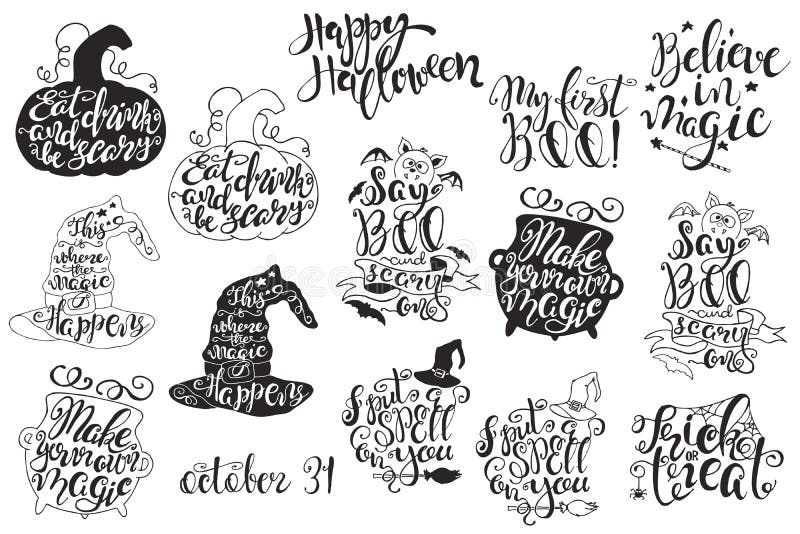 Happy
Halloween
Believe
in
magic
My first
BOO!
Eat drink
and
be scary
Eat drink
and
be scary
Say
BOO
and
scary
on
Say
BOO
and
scary
on
This
is
where
the
magic
Happens
Make
your own
magic
This
is
where
the
magic
Happens
Make
your own
magic
I put a
SPELL
on you
I put a
SPELL
on you
Trick
or
treat
october 31